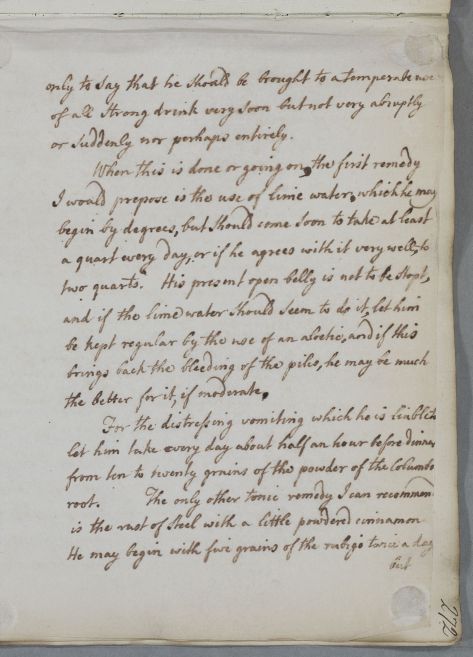 only to say that he should be brought to a temperate use
of all strong drink very soon but not very abruptly
or suddenly nor perhaps entirely.
When this is done or going on, the first remedy
I would propose is the use of lime water, which he may
begin by degrees, but should come soon to take at least
a quart every day, or if he agrees with it very well, to
two quarts. His present open belly is not to be stopt,
and if the lime water should seem to do it, let him
be kept regular by the use of an aloetic, and if this
brings back the bleeding of the piles, he may be much
the better for it, if moderate,
For the distressing vomiting which he is liable to
let him take every day about half an hour before dinner
from ten to twenty grains of the powder of the Columbo
root. The only other tonic remedy I can recommend
is the rust of steel with a little powdered cinnamon
He may begin with five grains of the rubigo twice a day
but
272